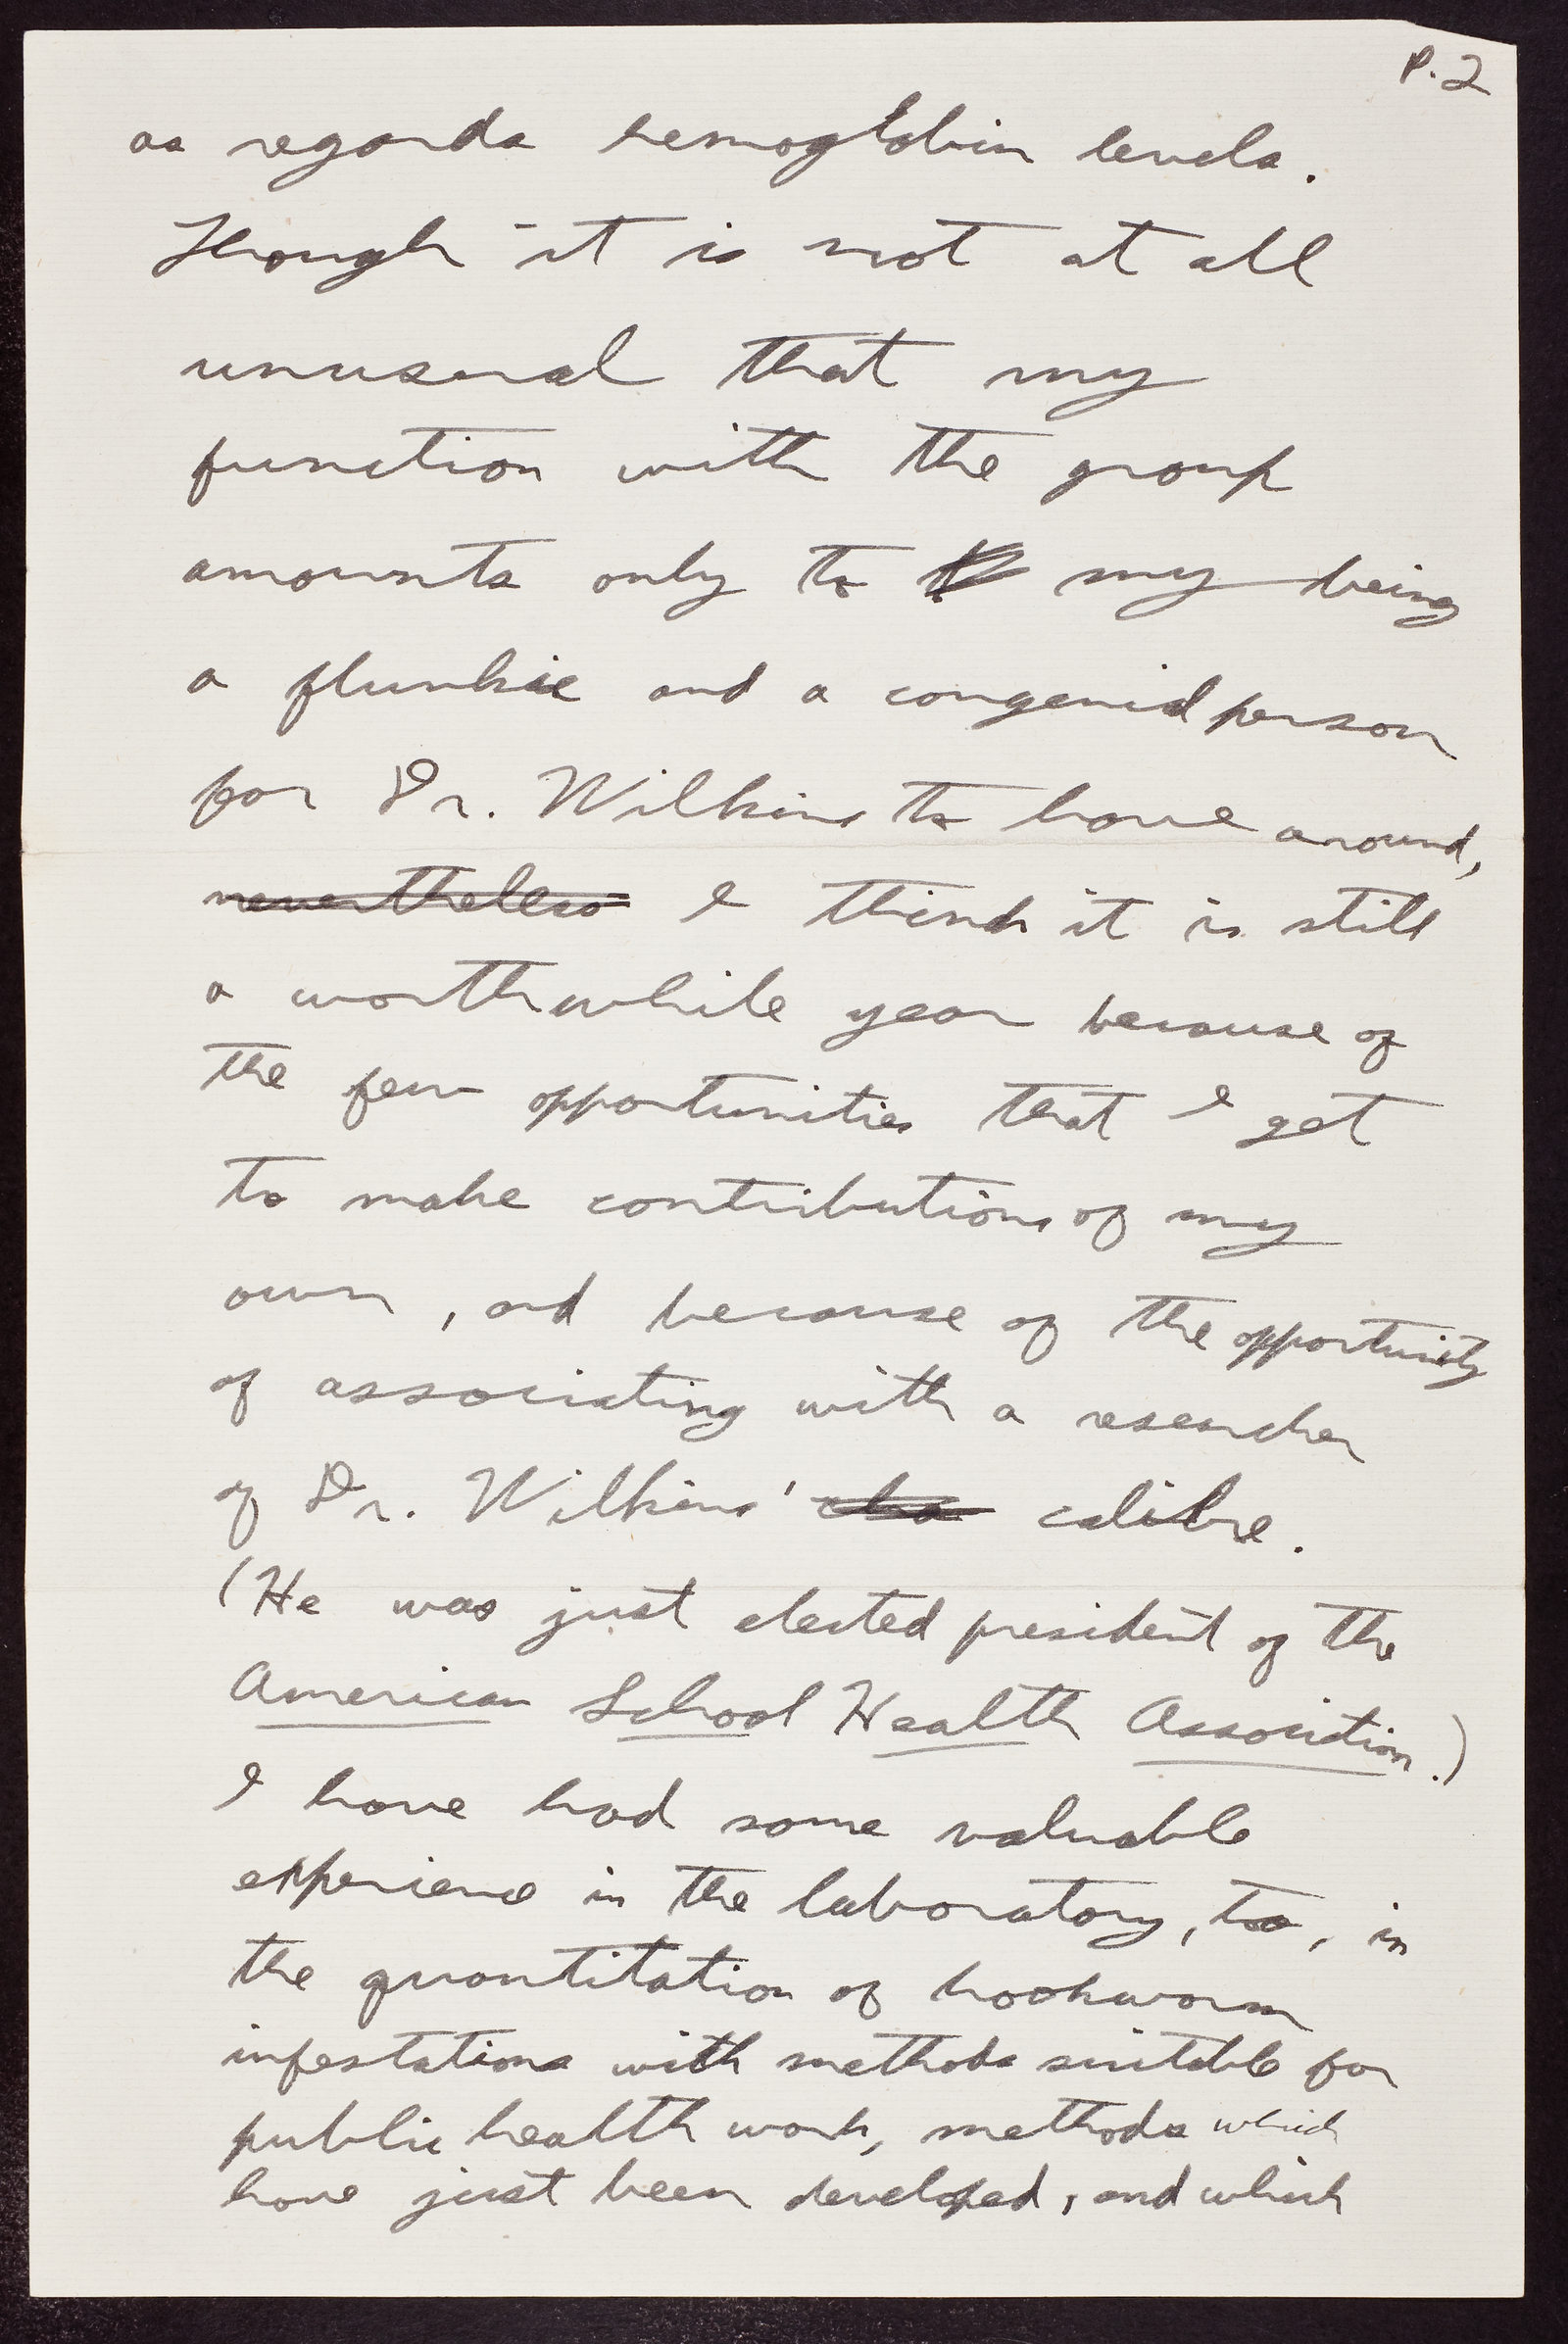 P. 2
as regards hemoglobin levels.
Though it is not at all
unusual that my
function with the group
amounts only to my being
a flunkie and a congenial person
for Dr. Wilkins to have around,
nevertheless I think it is still
a worthwhile year because of
the few opportunities that I get
to make contributions of my
own, and because of the opportunity
of associating with a researcher
of Dr. Wilkins' calibre.
(He was just elected president of the
American School Health Association.)
I have had some valuable
experience in the laboratory, too, in
the quantitation of hookworm
infestations with methods suitable for
public health work, methods which
have just been developed, and which